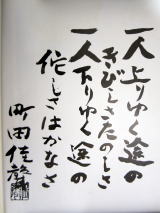 一人上りゆく途の
きびしさたのしさ
一人下りゆく途の
佗しさはかなさ
町田佳聲